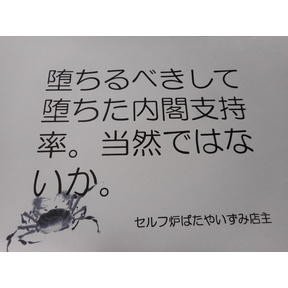 堕ちるべきして
堕ちた内閣支持
率。当然ではな
いか。
セルフ炉ばたやいずみ店主